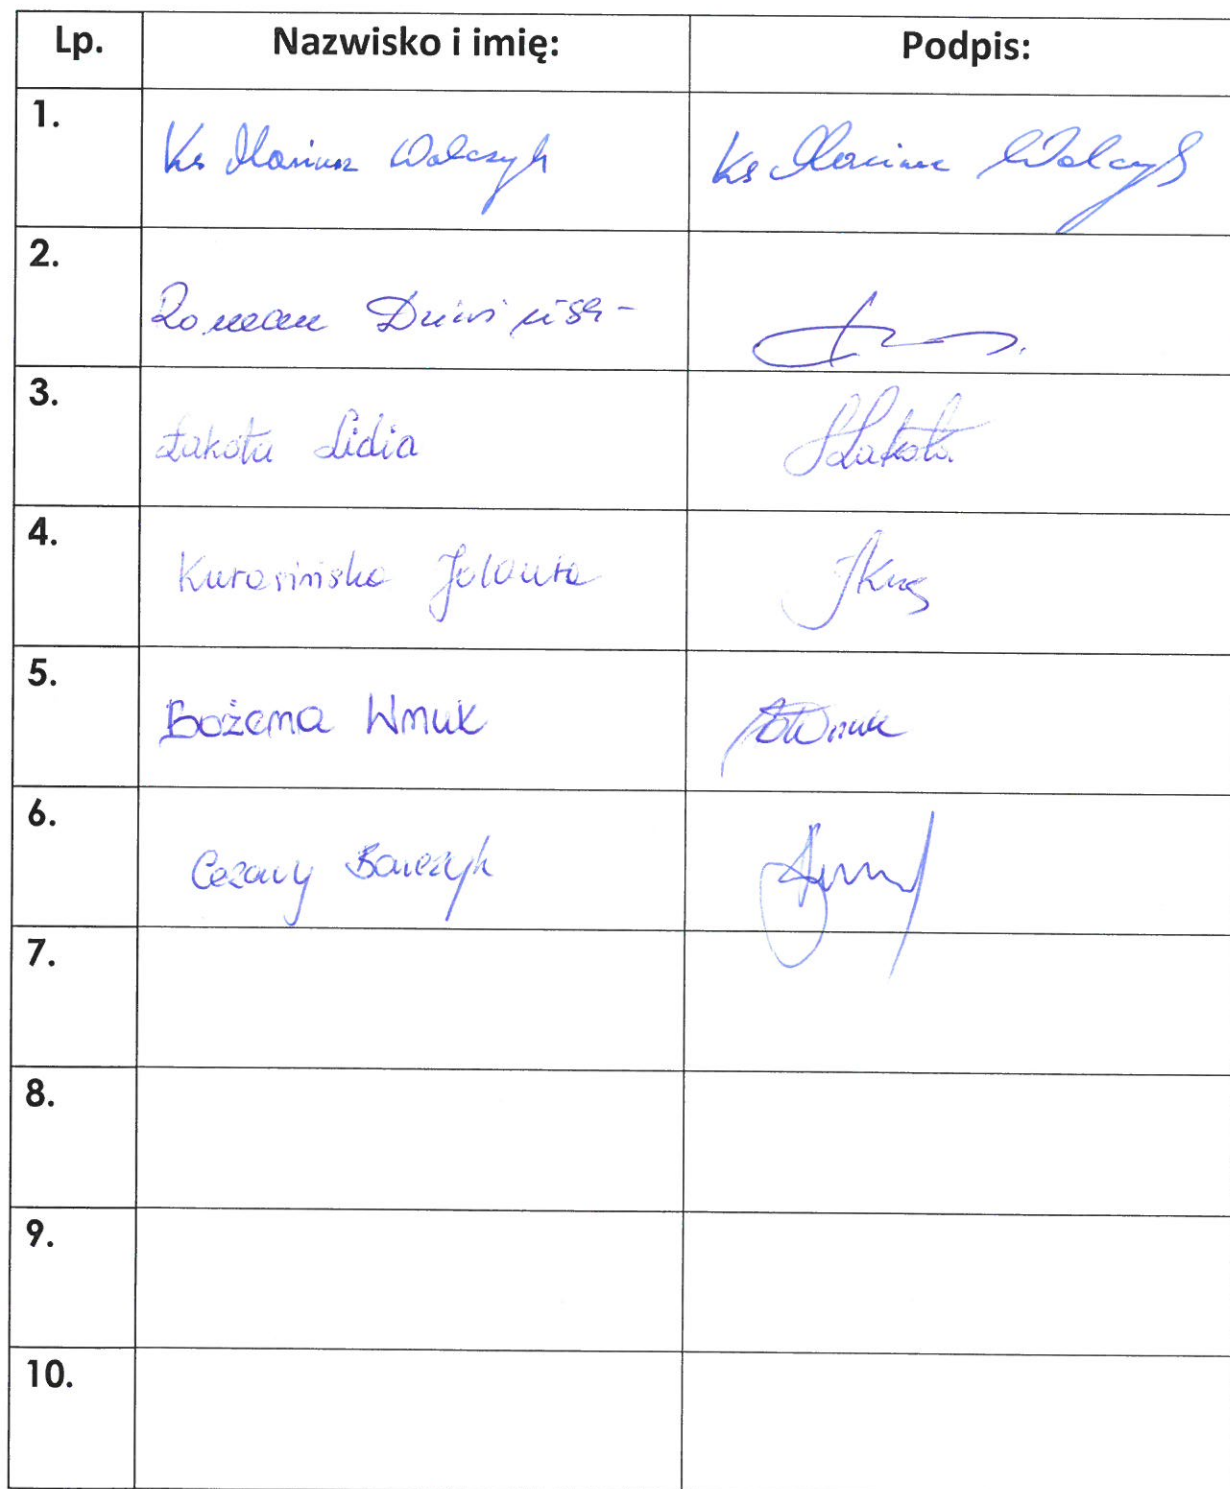 Lp. Nazwisko i imię: Podpis:
1. Ks Mariusz Walczyk Ks Mariusz Walczyk
2. Roman
3. Łakota Lidia Łakota
4. Kurasińska Jolanta JKuras
5. Bożena Wnuk BWnuk
6. Cezary Barczyk
7.
8.
9.
10.